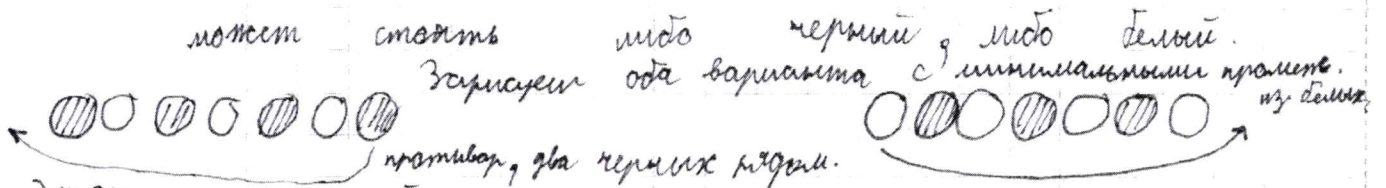 может стоять либо черный, либо белый.
Зарисуем оба варианта с минимальными промеж.
из белых,
противор, два черных рядом.